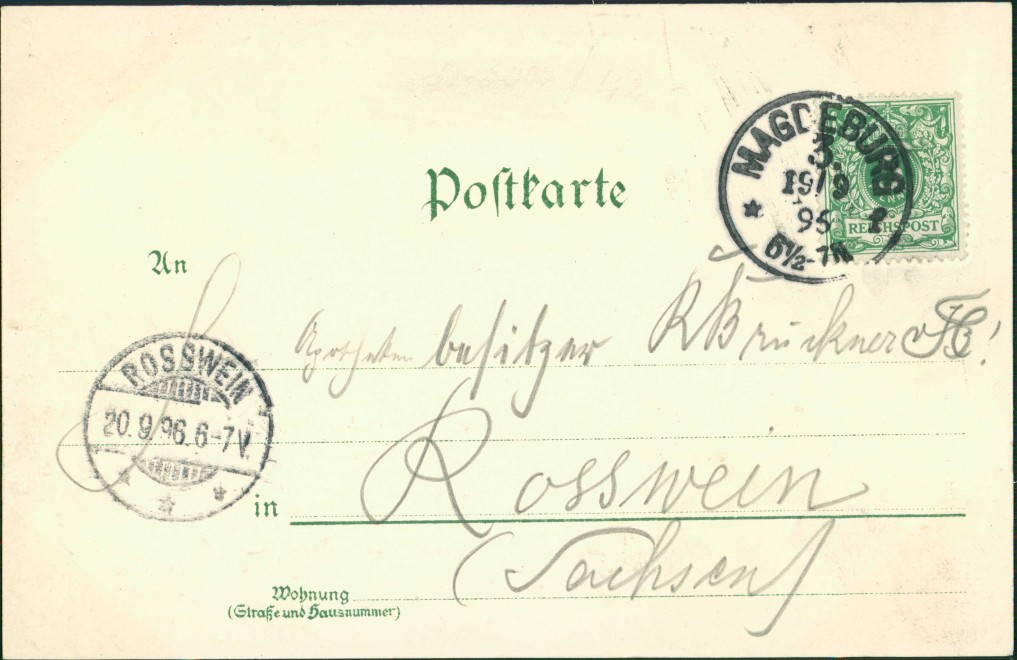 Postkarte
MAGDEBURG
3.
19/9
96
6½-7N
REICHSPOST
An
Apotheken besitzer R Bruckner
ROSSWEIN
20.9.96.6-7V.
Rosswein
in
(Sachsen)
Wohnung
(Straße und Hausnummer)